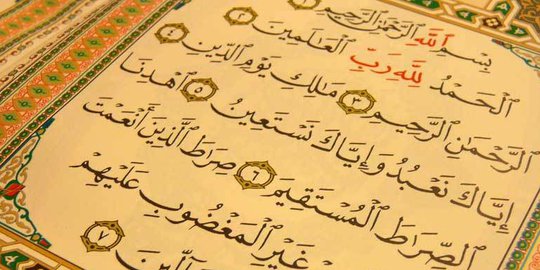 بِسْمِ ٱللَّهِ ٱلرَّحْمَٰنِ ٱلرَّحِيمِ ١
ٱلْحَمْدُ لِلَّهِ رَبِّ ٱلْعَالَمِينَ ٢
ٱلرَّحْمَٰنِ ٱلرَّحِيمِ ٣ مَالِكِ يَوْمِ ٱلدِّينِ ٤
إِيَّاكَ نَعْبُدُ وَإِيَّاكَ نَسْتَعِينُ ٥ ٱهْدِنَا
ٱلصِّرَاطَ ٱلْمُسْتَقِيمَ ٦ صِرَاطَ ٱلَّذِينَ أَنْعَمْتَ
عَلَيْهِمْ غَيْرِ ٱلْمَغْضُوبِ عَلَيْهِمْ
٧